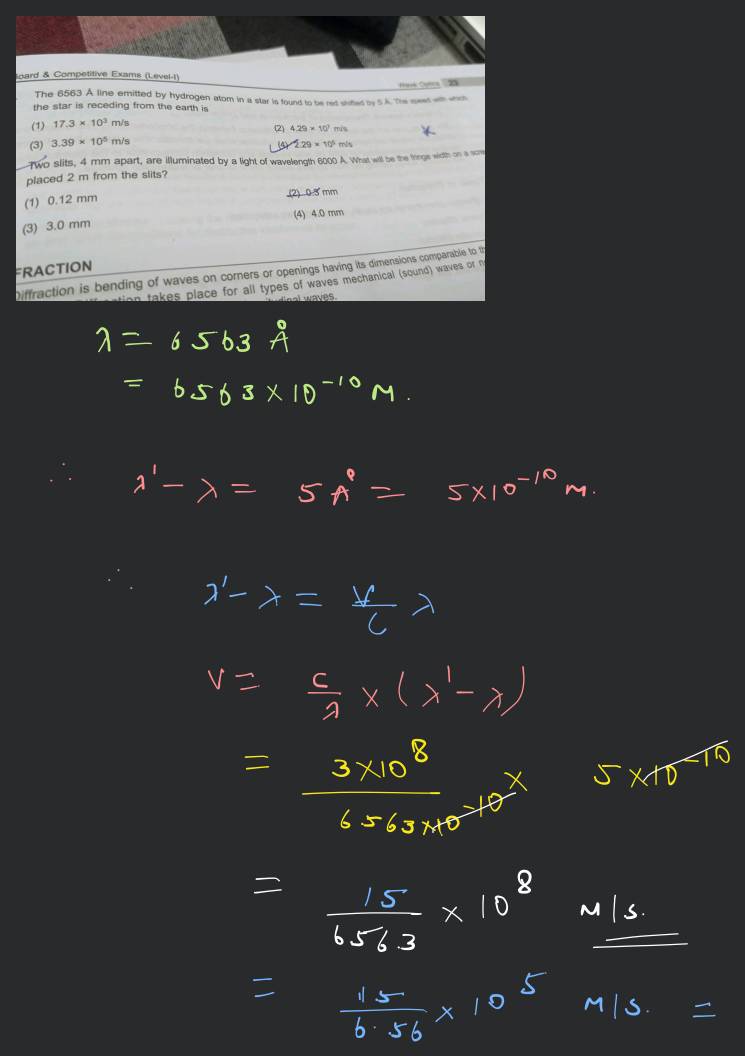 Board & Competitive Exams (Level-I)
Wave Optics 23
The 6563 Å line emitted by hydrogen atom in a star is found to be red shifted by 5 Å. The speed with which
the star is receding from the earth is
(1) 17.3 × 10³ m/s
(2) 4.29 × 10⁷ m/s
(3) 3.39 × 10⁵ m/s
(4) 2.29 × 10⁵ m/s
Two slits, 4 mm apart, are illuminated by a light of wavelength 6000 Å. What will be the fringe width on a
placed 2 m from the slits?
(1) 0.12 mm
(2) 0.3 mm
(3) 3.0 mm
(4) 4.0 mm
FRACTION
Diffraction is bending of waves on corners or openings having its dimensions comparable to
takes place for all types of waves mechanical (sound) waves or
waves.
λ = 6563 Å
= 6563 × 10⁻¹⁰ M.
∴ λ' - λ = 5 Å = 5 × 10⁻¹⁰ M.
∴ λ' - λ = V/C λ
V = C/λ × (λ' - λ)
= 3 × 10⁸ / 6563 × 10⁻¹⁰ × 5 × 10⁻¹⁰
= 15/6563 × 10⁸ M/S.
= 15/6.56 × 10⁵ M/S. =